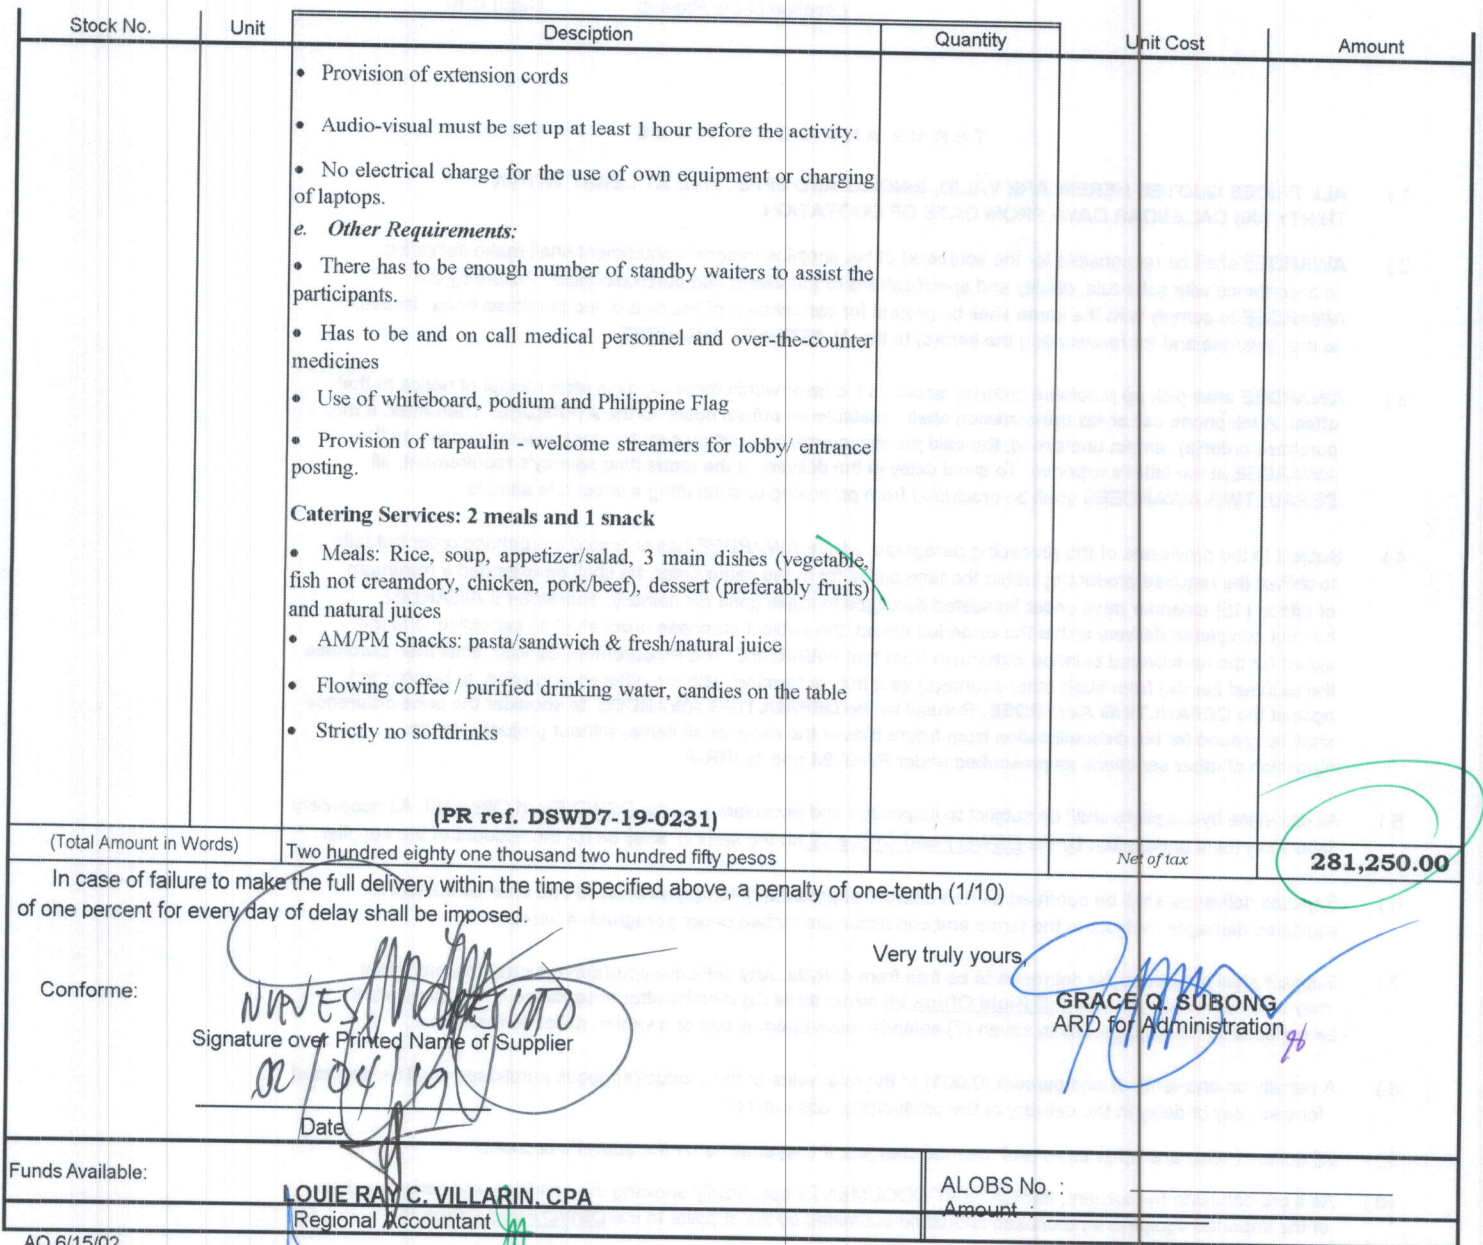 Stock No. Unit Desciption Quantity Unit Cost Amount
• Provision of extension cords
• Audio-visual must be set up at least 1 hour before the activity.
• No electrical charge for the use of own equipment or charging
of laptops.
e. Other Requirements:
• There has to be enough number of standby waiters to assist the
participants.
• Has to be and on call medical personnel and over-the-counter
medicines
• Use of whiteboard, podium and Philippine Flag
• Provision of tarpaulin - welcome streamers for lobby/ entrance
posting.
Catering Services: 2 meals and 1 snack
• Meals: Rice, soup, appetizer/salad, 3 main dishes (vegetable,
fish not creamdory, chicken, pork/beef), dessert (preferably fruits)
and natural juices
• AM/PM Snacks: pasta/sandwich & fresh/natural juice
• Flowing coffee / purified drinking water, candies on the table
• Strictly no softdrinks
(PR ref. DSWD7-19-0231)
(Total Amount in Words) Two hundred eighty one thousand two hundred fifty pesos Net of tax 281,250.00
In case of failure to make the full delivery within the time specified above, a penalty of one-tenth (1/10)
of one percent for every day of delay shall be imposed.
Very truly yours,
Conforme:
GRACE Q. SUBONG
ARD for Administration
Signature over Printed Name of Supplier
Date
Funds Available:
LOUIE RAY C. VILLARIN, CPA
Regional Accountant
ALOBS No. :
Amount :
AO 6/15/02